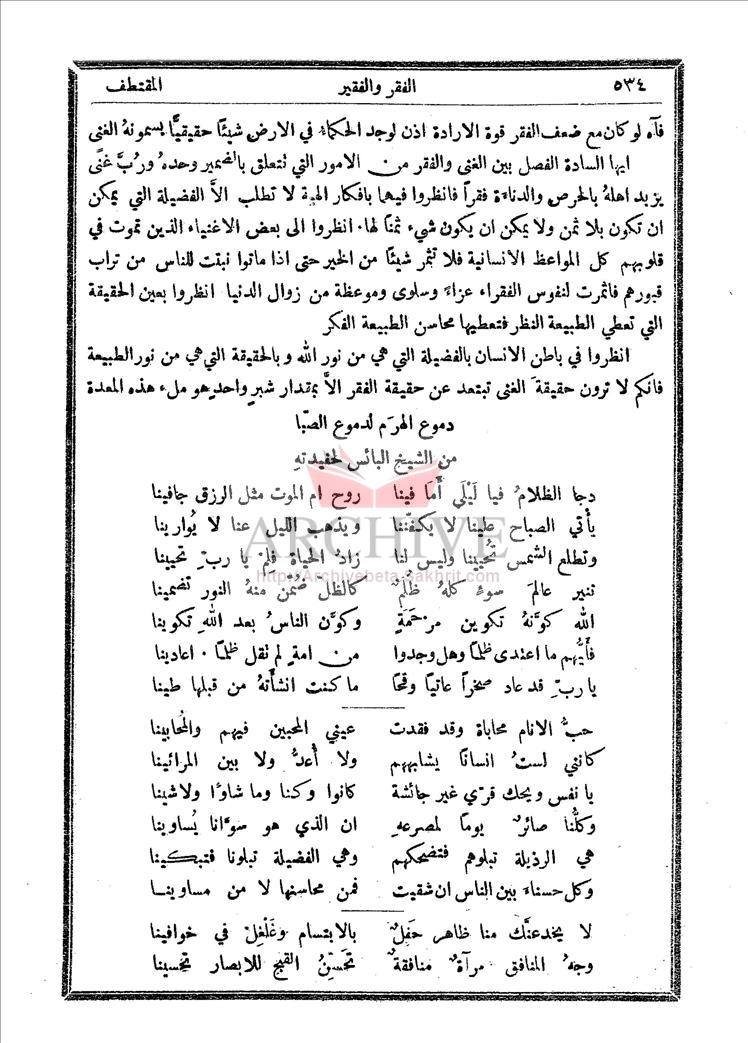 ٥٣٤ الفقر والفقير المقتطف
فآه لو كان مع ضعف الفقر قوة الارادة اذن لوجد الحكماء في الارض شيئًا حقيقيًّا يسمونهُ الغنى
ايها السادة الفصل بين الغنى والفقر من الامور التي تتعلق بالضمير وحدهُ ورُبَّ غنًى
يزيد اهلهُ بالحرص والدناءة فقراً فانظروا فيهما بافكار الهية لا تطلب الاَّ الفضيلة التي يمكن
ان تكون بلا ثمن ولا يمكن ان يكون شيء ثمنًا لها. انظروا الى بعض الاغنياء الذين تموت في
قلوبهم كل المواعظ الانسانية فلا تثمر شيئًا من الخير حتى اذا ماتوا نبتت للناس من تراب
قبورهم فاثمرت لنفوس الفقراء عزاءً وسلوى وموعظة من زوال الدنيا انظروا بعين الحقيقة
التي تعطي الطبيعة النظر فتعطيها محاسن الطبيعة الفكر
انظروا في باطن الانسان بالفضيلة التي هي من نور الله وبالحقيقة التي هي من نور الطبيعة
فانكم لا ترون حقيقة الغنى تبتعد عن حقيقة الفقر الاَّ بمقدار شبرٍ واحدٍ هو ملء هذه المعدة
دموع الهرَم لدموع الصِّبا
من الشيخ البائس لحفيدتهِ
دجا الظلامُ فيا لَيْلَي أَمَا فينا روح ام الموت مثل الرزق جافينا
يأتي الصباح علينا لا يكفّننا ويذهب الليل عنا لا يُوارينا
وتطلع الشمس تُحيينا وليس لنا زادُ الحياة فَلِمْ يا ربِّ تحيينا
تنير عالمَ سوءٍ كلهُ ظُلَمٌ كالظل ضُمّن منهُ النور تضمينا
الله كوَّنهُ تكوين مرْحَمَةٍ وكوَّن الناسُ بعد اللهِ تكوينا
فأيُّهم ما اعتدى ظلمًا وهل وجدوا من امةٍ لم تقل ظلمًا. اعادينا
يا ربِّ قد عاد صخراً عاتيًا وقحًا ما كنت انشأتهُ من قبلها طينا
حبُّ الانام محاباة وقد فقدت عيني المحبين فيهم والمُحابينا
كأنني لستُ انسانًا يشابههم ولا أُعدُّ ولا بين المرائينا
يا نفس ويحك قرّي غير جائشة كانوا وكنا وما شاوْا ولا شينا
وكلُّنا صائرٌ يومًا لمصرعهِ ان الذي هو سوَّانا يُساوينا
هي الرذيلة تبلوهم فتضحكهم وهي الفضيلة تبلونا فتبكّينا
وكل حسناءَ بين الناس ان شقيت فمن محاسنها لا من مساوينا
لا يخدعنَّك منا ظاهر حَفِلٌ بالابتسام وغَلْغِلْ في خوافينا
وجهُ المنافق مرآةٌ منافقةٌ تحَسّنُ القبح للابصار تحسينا
ARCHIVE
http://Archivebeta.Sakhrit.com